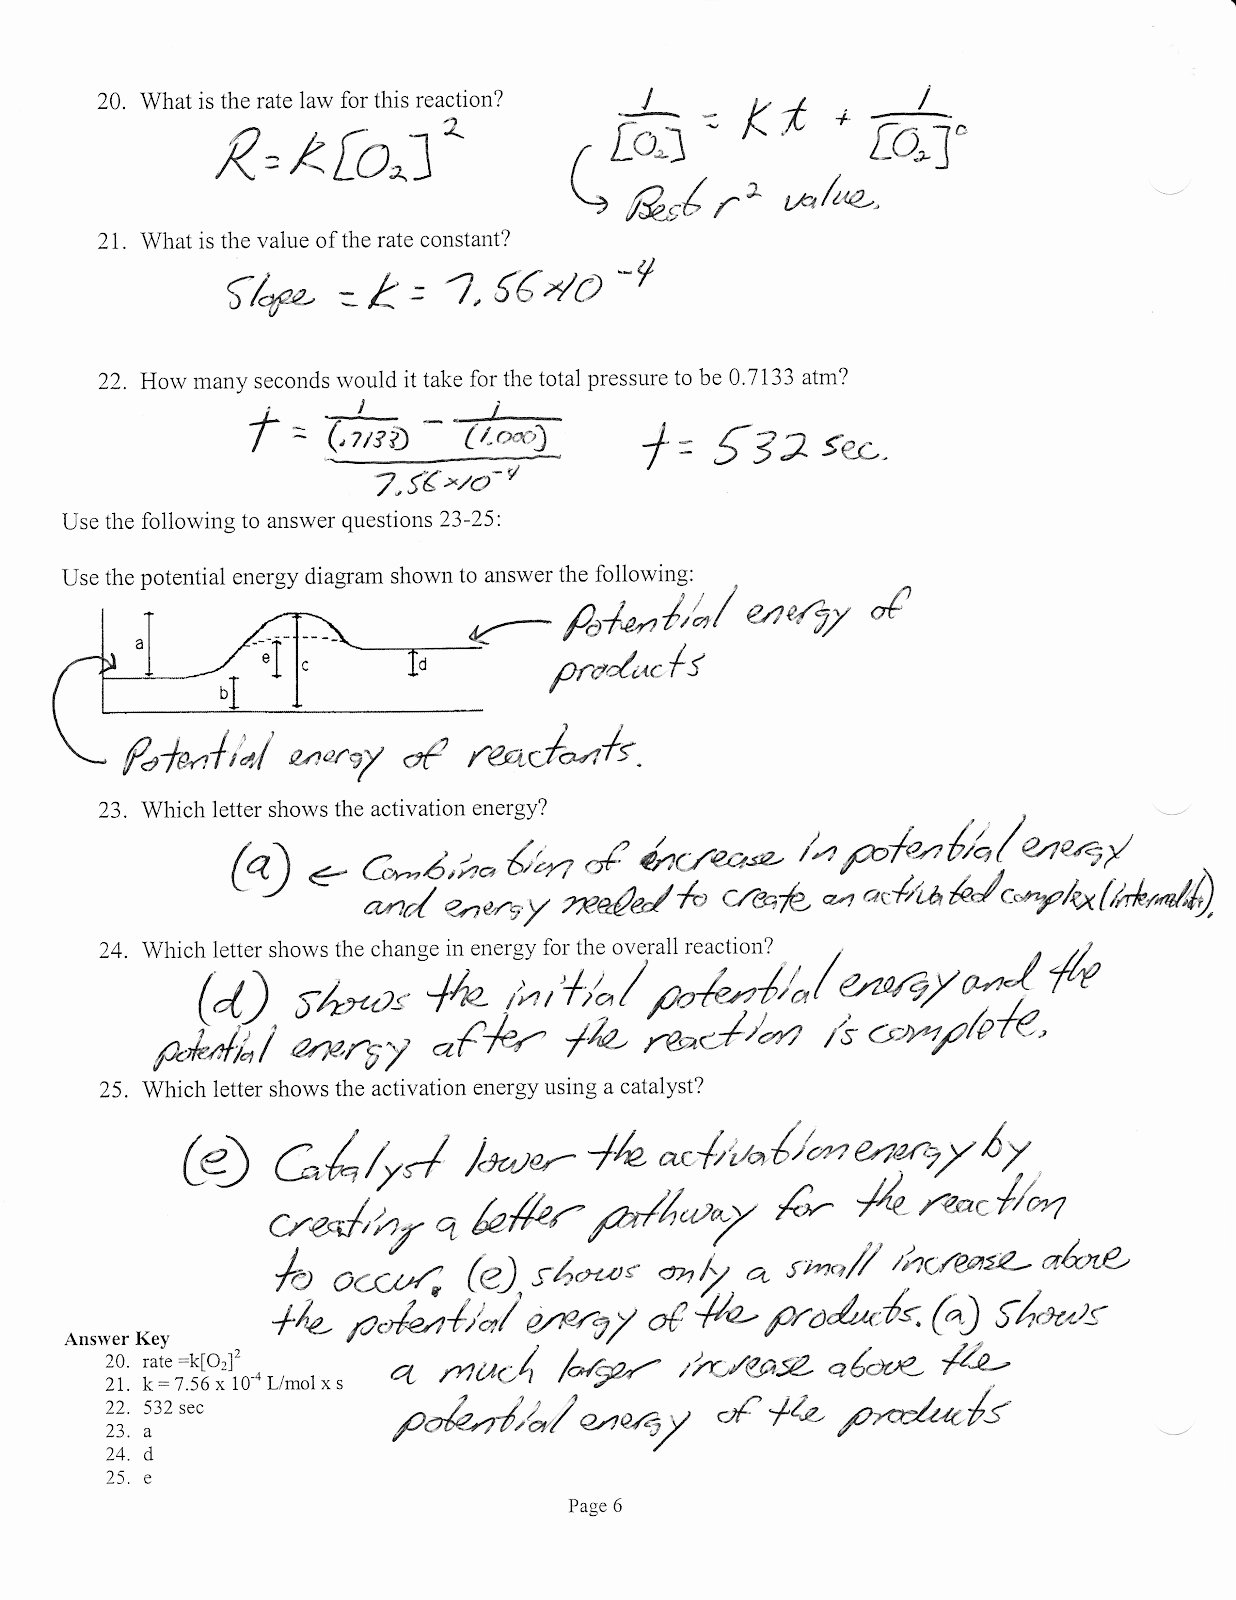 20. What is the rate law for this reaction?
R = k[O₂]²
1/[O₂] = kt + 1/[O₂]°
Best r² value.
21. What is the value of the rate constant?
Slope = k = 7.56x10⁻⁴
22. How many seconds would it take for the total pressure to be 0.7133 atm?
t = (1/(.7133) - 1/(1.000)) / 7.56x10⁻⁴
t = 532 sec.
Use the following to answer questions 23-25:
Use the potential energy diagram shown to answer the following:
a
e
c
d
b
Potential energy of
products
Potential energy of reactants.
23. Which letter shows the activation energy?
(a) ← Combination of increase in potential energy
and energy needed to create an activated complex
24. Which letter shows the change in energy for the overall reaction?
(d) shows the initial potential energy and the
potential energy after the reaction is complete.
25. Which letter shows the activation energy using a catalyst?
(e) Catalyst lower the activation energy by
creating a better pathway for the reaction
to occur. (e) shows only a small increase above
the potential energy of the products. (a) shows
a much larger increase above the
potential energy of the products
Answer Key
20. rate =k[O₂]²
21. k = 7.56 x 10⁻⁴ L/mol x s
22. 532 sec
23. a
24. d
25. e
Page 6